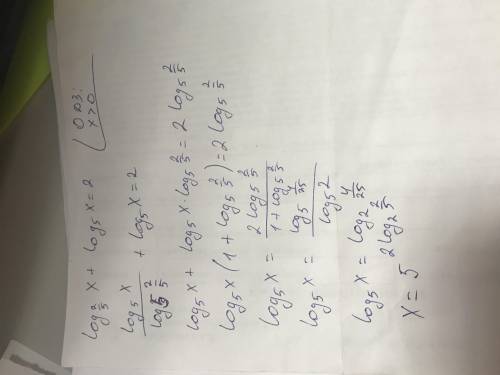 log_{2/5} x + log_5 x = 2 ( ОДЗ: x>0
\frac{log_5 x}{log_5 \frac{2}{5}} + log_5 x = 2
log_5 x + log_5 x · log_5 \frac{2}{5} = 2 log_5 \frac{2}{5}
log_5 x (1 + log_5 \frac{2}{5}) = 2 log_5 \frac{2}{5}
log_5 x = \frac{2 log_5 \frac{2}{5}}{1 + log_5 \frac{2}{5}}
log_5 x = \frac{log_5 \frac{4}{25}}{log_5 2}
log_5 x = log_2 \frac{4}{25}
x = 5^{2 log_2 \frac{2}{5}}